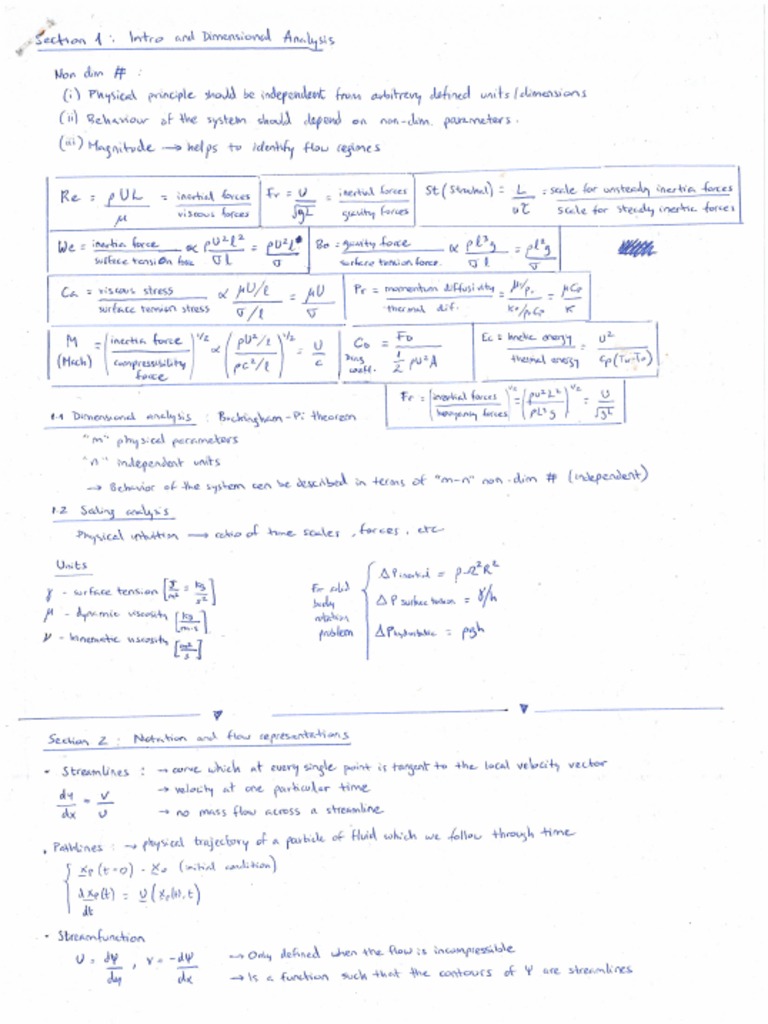 Section 1: Intro and Dimensional Analysis
Non dim # :
(i) Physical principle should be independent from arbitrary defined units/dimensions
(ii) Behaviour of the system should depend on non-dim. parameters.
(iii) Magnitude → helps to identify flow regimes
Re = ρUL/μ = inertial forces/viscous forces
Fr = U/√gL = inertial forces/gravity forces
St (Strouhal) = L/uτ = scale for unsteady inertia forces/scale for steady inertia forces
We = inertia force/surface tension force ∝ ρU²l²/σl = ρU²l/σ
Bo = gravity force/surface tension force ∝ ρl³g/σl = ρl²g/σ
Ca = viscous stress/surface tension stress ∝ μU/l/σ/l = μU/σ
Pr = momentum diffusivity/thermal dif. = μ/ρ/κ/ρCp = μCp/κ
M (Mach) = (inertia force/compressibility force)^1/2 ∝ (ρU²/l/ρc²/l)^1/2 = U/c
C_D Drag coeff. = F_D/½ρU²A
Ec = kinetic energy/thermal energy = U²/Cp(Tw-To)
Fr = (inertial forces/buoyancy forces)^1/2 = (ρU²L²/ρL³g)^1/2 = U/√gL
1.1 Dimensional analysis : Buckingham-Pi theorem
"m" physical parameters
"n" independent units
→ Behavior of the system can be described in terms of "m-n" non-dim # (independent)
1.2 Scaling analysis
Physical intuition → ratio of time scales, forces, etc
Units
γ - surface tension [J/m² = kg/s²]
μ - dynamic viscosity [kg/m·s]
ν - kinematic viscosity [m²/s]
For solid body rotation problem
ΔP inertial = ρΩ²R²
ΔP surface tension = γ/h
ΔP hydrostatic = ρgh
Section 2: Notation and flow representations
• Streamlines : → curve which at every single point is tangent to the local velocity vector
dy/dx = V/U → velocity at one particular time
→ no mass flow across a streamline
• Pathlines : → physical trajectory of a particle of fluid which we follow through time
Xp(t=0) = Xo (initial condition)
dXp(t)/dt = U(Xp(t), t)
• Streamfunction
U = dΨ/dy , V = -dΨ/dx → Only defined when the flow is incompressible
→ Is a function such that the contours of Ψ are streamlines